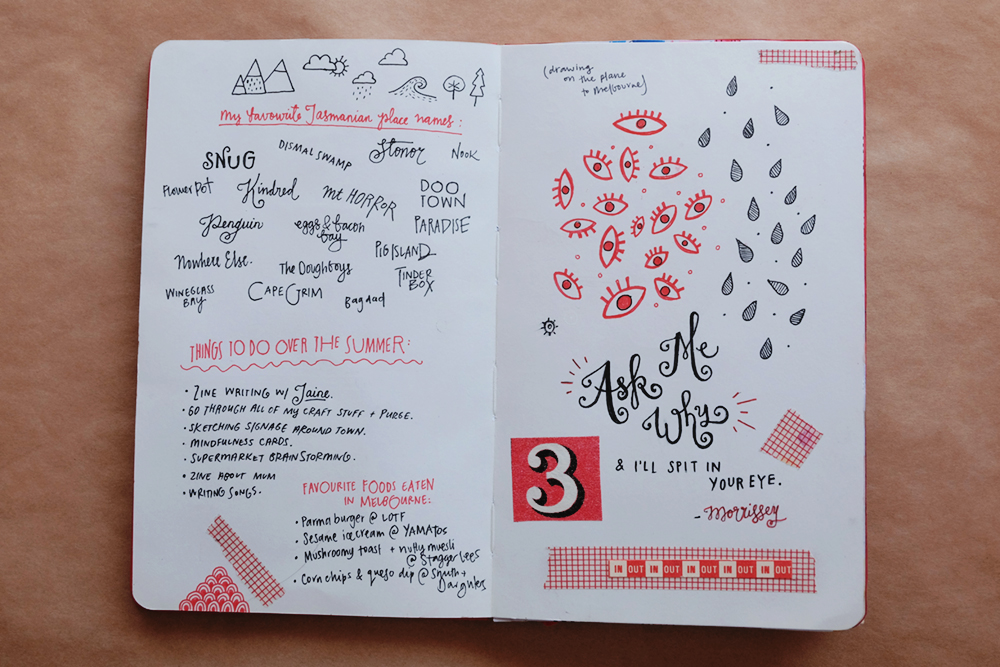 My favourite Tasmanian place names:
SNUG DISMAL SWAMP Stonor NOOK
Flower Pot Kindred Mt HORROR DOO TOWN
Penguin eggs & bacon bay PARADISE
Nowhere Else. The Doughboys PIG ISLAND
WINEGLASS BAY CAPE GRIM Bagdad TINDER BOX
THINGS TO DO OVER THE SUMMER:
• ZINE WRITING W/ Jaine.
• GO THROUGH ALL OF MY CRAFT STUFF + PURGE.
• SKETCHING SIGNAGE AROUND TOWN.
• MINDFULNESS CARDS.
• SUPERMARKET BRAINSTORMING.
• ZINE ABOUT MUM
• WRITING SONGS.
FAVOURITE FOODS EATEN
IN MELBOURNE:
• Parma burger @ LOTF
• Sesame icecream @ YAMATOS
• Mushroomy toast + nutty muesli
@ Stagger Lees
• Corn chips & queso dip @ Smith +
Daughters
(drawing
on the plane
to Melbourne)
Ask Me
Why
& I'LL SPIT IN
YOUR EYE.
- Morrissey
3
IN OUT IN OUT IN OUT IN OUT IN OUT